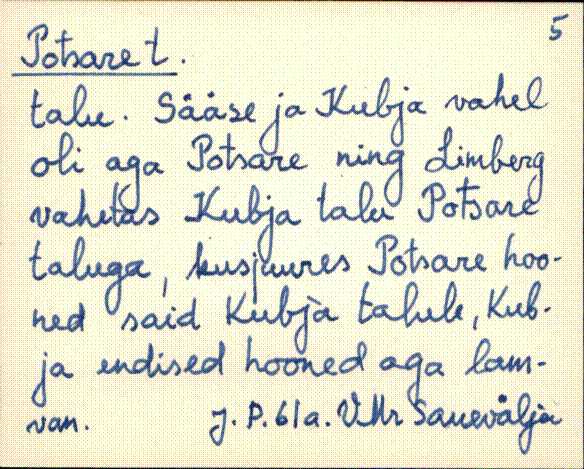 5
Potsare t.
talu. Sääse ja Kubja vahel
oli aga Potsare ning Limberg
vahetas Kubja talu Potsare
taluga, kusjuures Potsare hoo-
ned said Kubja talule, Kub-
ja endised hooned aga lam-
van.    J. P. 61a. VMr Sauevälja